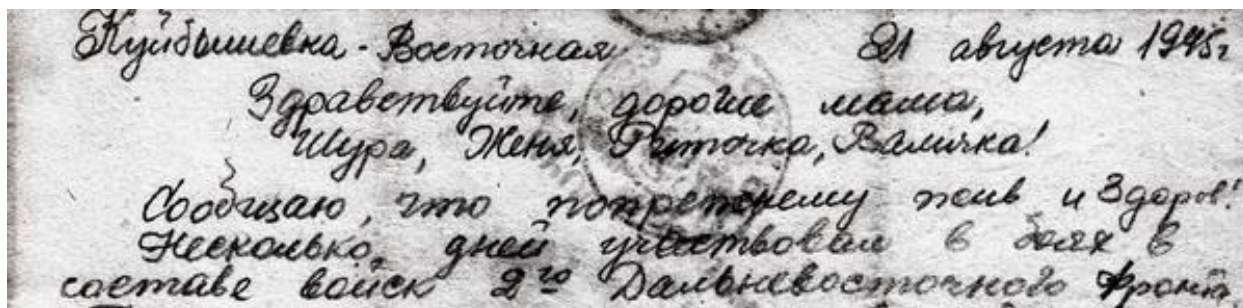 Куйбышевка-Восточная 21 августа 1945г
Здравствуйте, дорогие мама,
Шура, Женя, Риточка, Валичка!
Сообщаю, что попрежнему жив и здоров!
Несколько дней участвовал в боях в
составе войск 2го Дальневосточного фронта